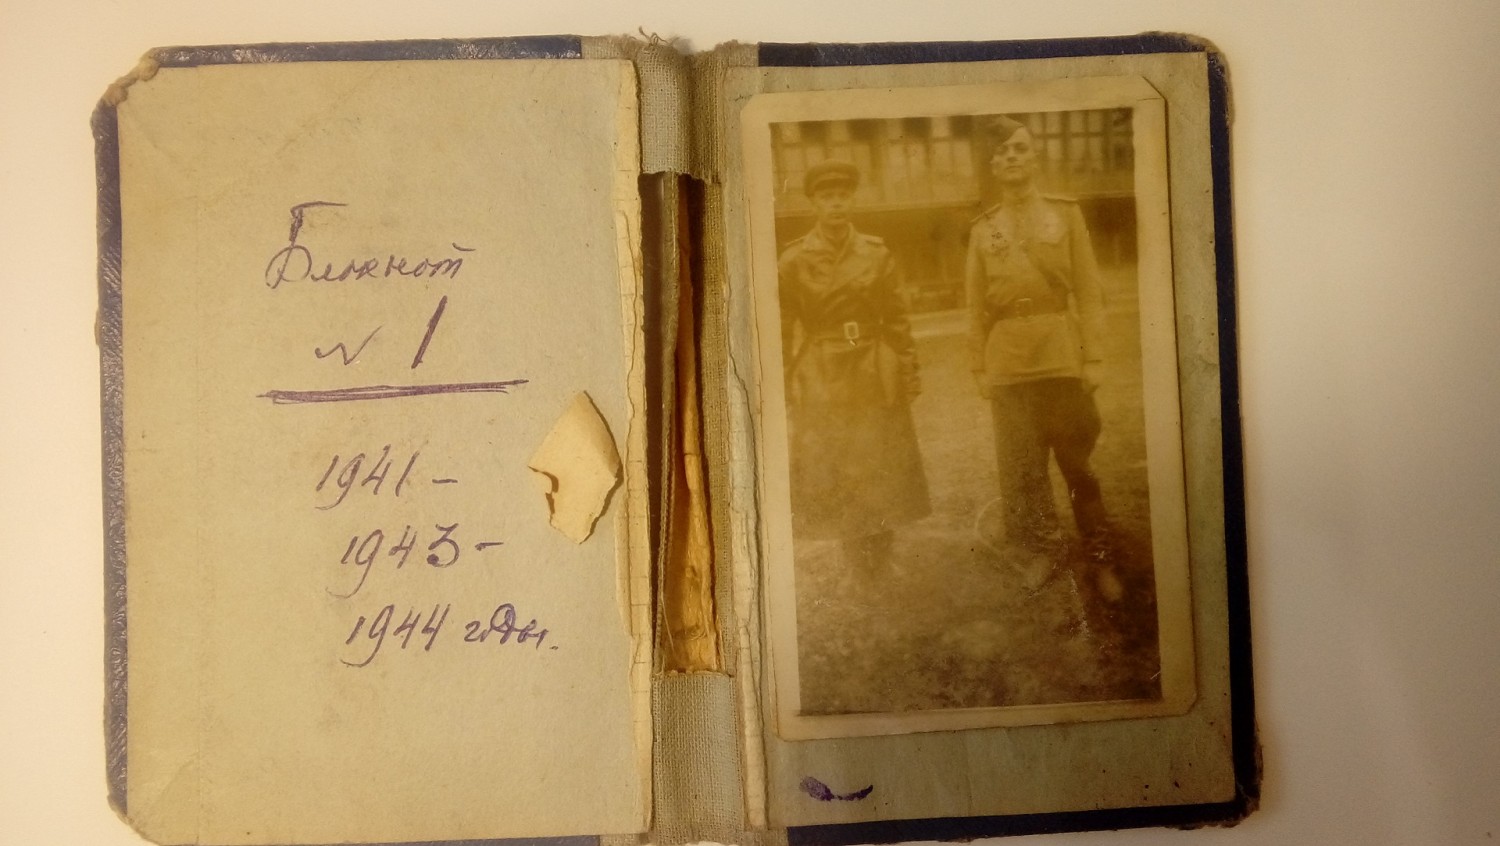 Блокнот
N 1
1941 –
1943 –
1944 годы.